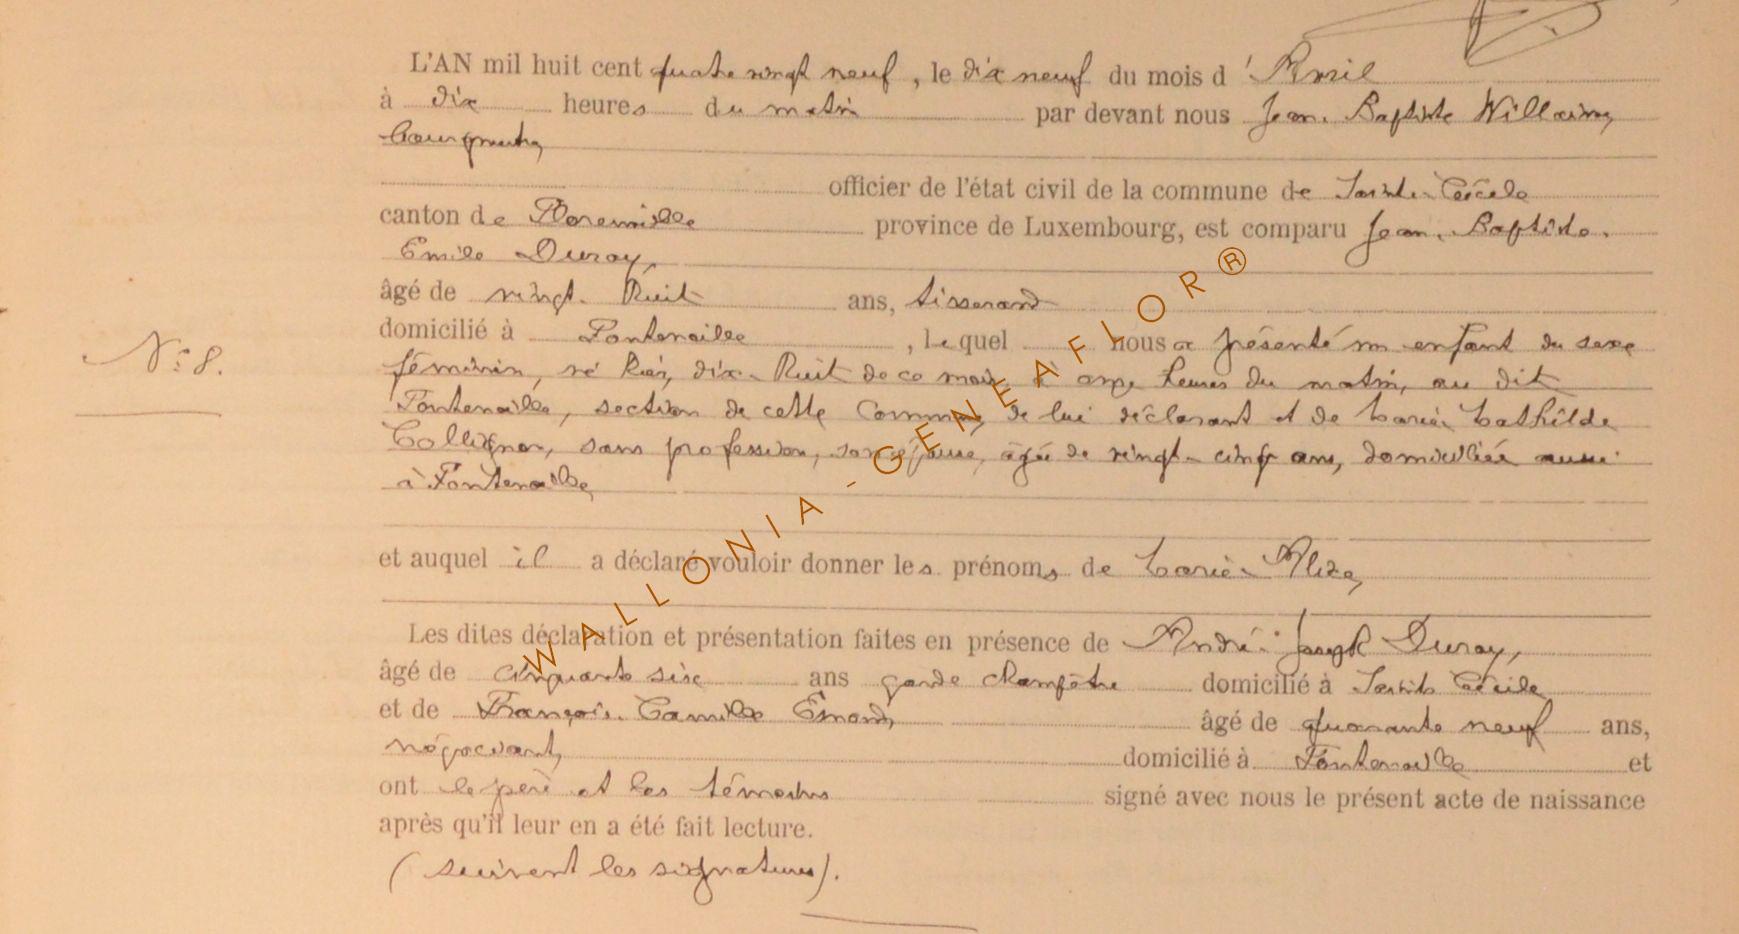 L'AN mil huit cent quatre vingt neuf, le dix neuf du mois d'Avril
à dix heures du matin par devant nous Jean-Baptiste Willaime,
bourgmestre,
officier de l'état civil de la commune de Sainte-Cécile
canton de Florenville province de Luxembourg, est comparu Jean-Baptiste-
Emile Duroy,
âgé de vingt-huit ans, tisserand
domicilié à Fontenoille, lequel nous a présenté un enfant du sexe
N° 8.
féminin, né hier, dix-huit de ce mois, à onze heures du matin, au dit
Fontenoille, section de cette Commune, de lui déclarant et de Marie-Mathilde
Collignon, sans profession, son épouse, âgée de vingt-cinq ans, domiciliée aussi
à Fontenoille,
et auquel il a déclaré vouloir donner les prénoms de Marie-Aliza,
Les dites déclaration et présentation faites en présence de André-Joseph Duroy,
âgé de cinquante six ans garde champêtre domicilié à Sainte Cécile
et de François-Camille Emond, âgé de quarante neuf ans,
négociant, domicilié à Fontenoille et
ont le père et les témoins signé avec nous le présent acte de naissance
après qu'il leur en a été fait lecture.
(suivent les signatures).
WALLONIA-GENEAFLOR®